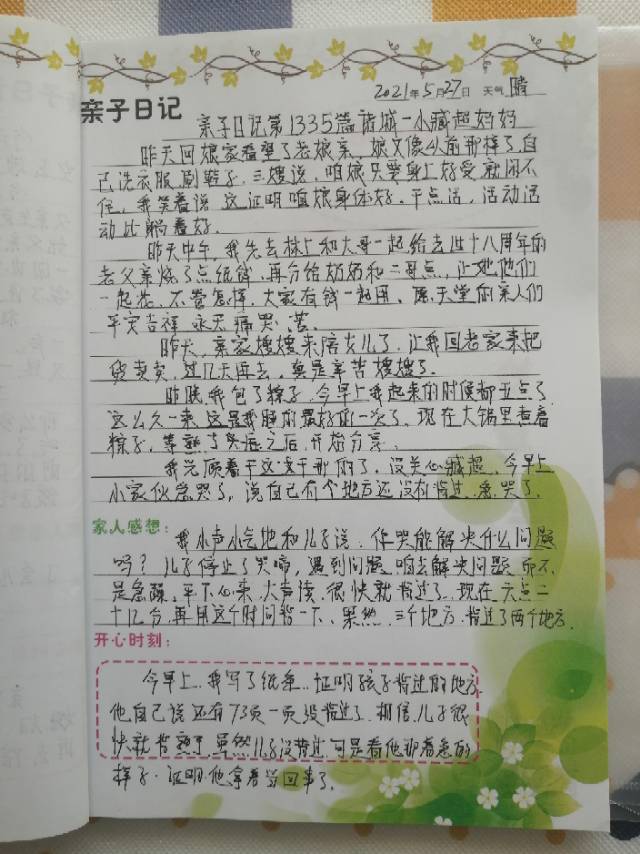 2021年5月27日 天气 晴
亲子日记
亲子日记第1335篇诸城一小臧超妈妈
昨天回娘家看望了老娘亲、娘又像以前那样了,自
己洗衣服,刷鞋子,三嫂说,咱娘只要身上好受就闲不
住,我笑着说这证明咱娘身体好。干点活,活动活
动比躺着好。
昨天中午,我先去林上和大哥一起给去过十八周年的
老父亲烧了点纸钱,再分给奶奶和二哥点,让她他们
一起花,不管怎样,大家有钱一起用,愿天堂的亲人们
平安吉祥 永无痛 苦。
昨天,亲家嫂嫂来陪女儿了,让我回老家来把
货卖卖,过几天再去,真是辛苦嫂嫂了。
昨晚,我包了粽子,今早上我起来的时候都五点了
这么久一来,这是我睡的最好的一次了,现在大锅里煮着
粽子,等熟了 之后,开始分享。
我光顾着干这干那的了,没关心臧超,今早上
小家伙急哭了,说自己有个地方还没有背过,急哭了。
家人感想:
我小声小气地和儿子说,你哭能解决什么问题
吗?儿子停止了哭啼,遇到问题,咱去解决问题,而不
是急躁,平下心来,大声读,很快就背过了,现在六点二
十几分,再用这个时间背一下、果然,三个地方,背过了两个地方.
开心时刻:
今早上,我写了纸条,证明孩子背过的地方,
他自己说还有73页一页没背过了,相信儿子很
快就背熟了,虽然儿子没背过,可是看他那着急的
样子,证明,他拿着当回事了。